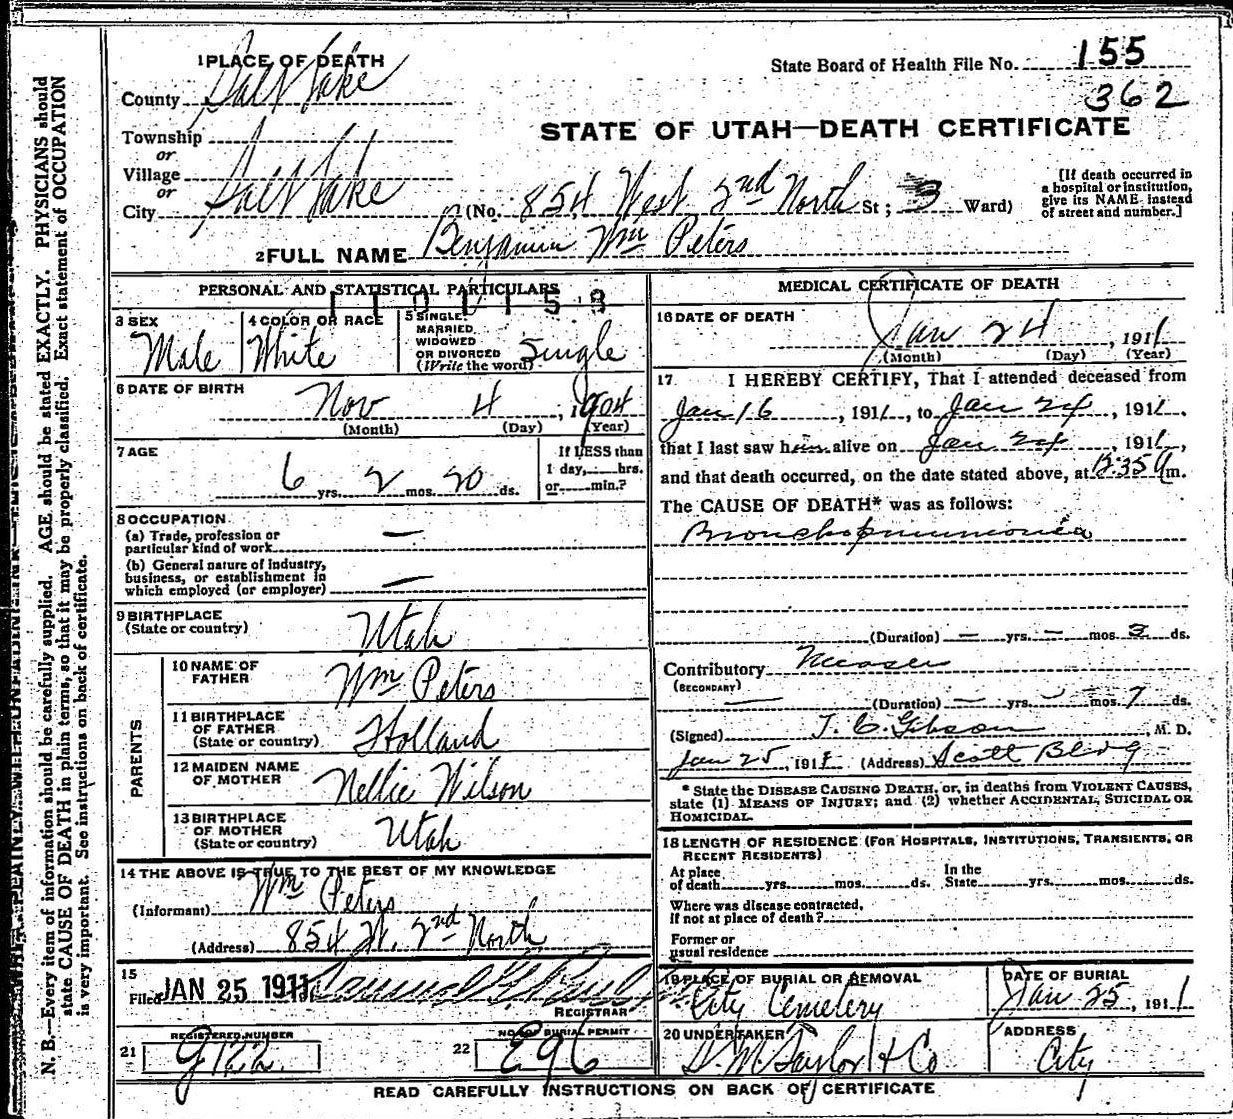 1 PLACE OF DEATH
County Salt Lake
Township
or
Village
or
City Salt Lake
State Board of Health File No. 155
362
STATE OF UTAH—DEATH CERTIFICATE
(No. 854 West 2nd North St; 3 Ward)
[If death occurred in
a hospital or institution,
give its NAME instead
of street and number.]
2 FULL NAME Benjamin Wm Peters
PERSONAL AND STATISTICAL PARTICULARS
3 SEX
Male
4 COLOR OR RACE
White
5 SINGLE,
MARRIED,
WIDOWED
OR DIVORCED
(Write the word)
Single
6 DATE OF BIRTH
Nov 4, 1904
(Month) (Day) (Year)
7 AGE
6 yrs. 2 mos. 20 ds.
If LESS than
1 day, hrs.
or min.?
8 OCCUPATION
(a) Trade, profession or
particular kind of work —
(b) General nature of industry,
business, or establishment in
which employed (or employer) —
9 BIRTHPLACE
(State or country)
Utah
PARENTS
10 NAME OF
FATHER
Wm Peters
11 BIRTHPLACE
OF FATHER
(State or country)
Holland
12 MAIDEN NAME
OF MOTHER
Nellie Wilson
13 BIRTHPLACE
OF MOTHER
(State or country)
Utah
14 THE ABOVE IS TRUE TO THE BEST OF MY KNOWLEDGE
(Informant) Wm Peters
(Address) 854 W. 2nd North
15
Filed JAN 25 1911
REGISTRAR
REGISTERED NUMBER
21 9122
NO. OF BURIAL PERMIT
22 E96
MEDICAL CERTIFICATE OF DEATH
16 DATE OF DEATH
Jan 24, 1911
(Month) (Day) (Year)
17 I HEREBY CERTIFY, That I attended deceased from
Jan 16, 1911, to Jan 24, 1911.
that I last saw him alive on Jan 24, 1911,
and that death occurred, on the date stated above, at 12:35 A m.
The CAUSE OF DEATH* was as follows:
Bronchopneumonia
(Duration) — yrs. — mos. 3 ds.
Contributory Measles
(SECONDARY)
(Duration) — yrs. — mos. 7 ds.
(Signed) J. C. Gibson, M. D.
Jan 25, 1911 (Address) Scott Bldg
* State the DISEASE CAUSING DEATH, or, in deaths from VIOLENT CAUSES,
state (1) MEANS OF INJURY; and (2) whether ACCIDENTAL, SUICIDAL OR
HOMICIDAL.
18 LENGTH OF RESIDENCE (FOR HOSPITALS, INSTITUTIONS, TRANSIENTS, OR
RECENT RESIDENTS)
At place
of death yrs. mos. ds.
In the
State yrs. mos. ds.
Where was disease contracted,
if not at place of death?
Former or
usual residence
19 PLACE OF BURIAL OR REMOVAL
City Cemetery
DATE OF BURIAL
Jan 25, 1911
20 UNDERTAKER
S. M. Taylor & Co
ADDRESS
City
READ CAREFULLY INSTRUCTIONS ON BACK OF CERTIFICATE
N. B.—Every item of information should be carefully supplied. AGE should be stated EXACTLY. PHYSICIANS should
state CAUSE OF DEATH in plain terms, so that it may be properly classified. Exact statement of OCCUPATION
is very important. See instructions on back of certificate.